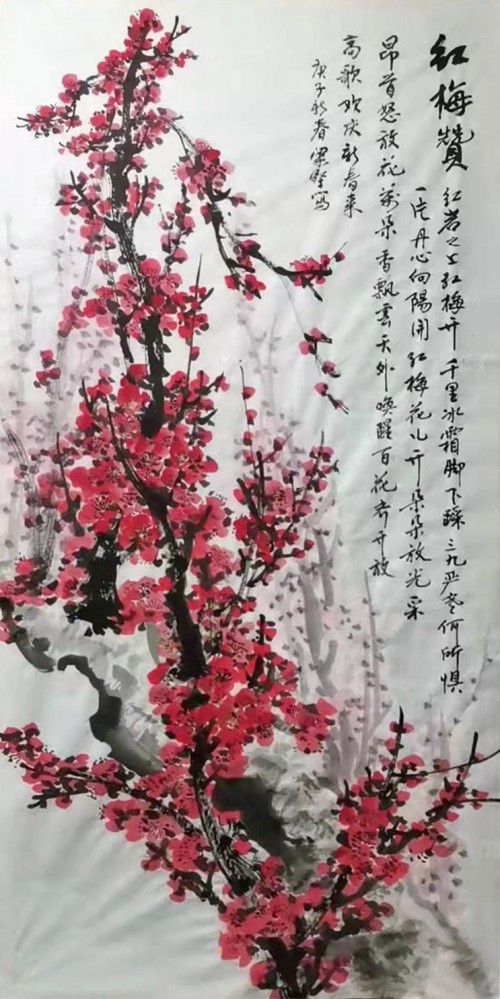 红梅赞
红岩之上红梅开 千里冰霜脚下踩 三九严冬何所惧
一片丹心向阳开 红梅花儿开 朵朵放光采
昂首怒放花万朵 香飘云天外 唤醒百花齐开放
高歌欢庆新春来
庚子新春 梁坚写